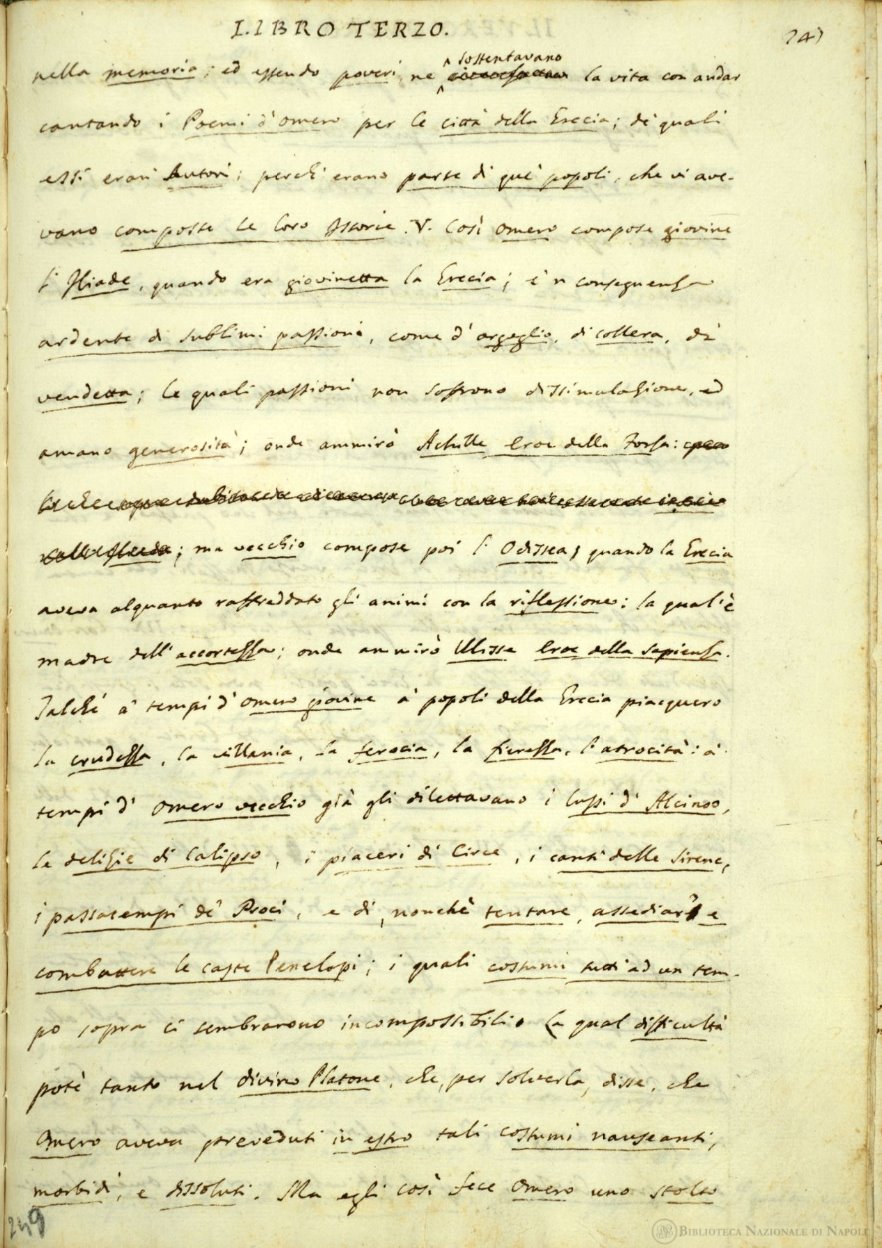 LIBRO TERZO.
247
sostentavano
nella memoria; ed essendo poveri, ne la vita con andar
cantando i Poemi d'Omero per le città della Grecia; de' quali
essi eran' Autori; perch'erano parte di que' popoli, che vi ave-
vano composte le loro Istorie. V. Così Omero compose giovine
l'Iliade, quando era giovinetta la Grecia; e 'n conseguenza
ardente di sublimi passioni, come d'orgoglio, di collera, di
vendetta; le quali passioni non soffrono dissimulazione, ed
amano generosità; onde ammirò Achille Eroe della Forza:
; ma vecchio compose poi l'Odissea, quando la Grecia
aveva alquanto raffreddato gli animi con la riflessione; la qual'è
madre dell'accortezza; onde ammirò Ulisse Eroe della Sapienza.
Talché a' tempi d'Omero giovine a' popoli della Grecia piacquero
la crudezza, la villania, la ferocia, la fierezza, l'atrocità: a'
tempi d'Omero vecchio già gli dilettavano i lussi d'Alcinoo,
le delizie di Calipso, i piaceri di Circe, i canti delle Sirene,
i passatempi de' Proci, e di, nonchè tentare, assediar' e
combattere le caste Penelopi; i quali costumi tutti ad un tem-
po sopra ci sembrarono incompossibili. La qual difficultà
potè tanto nel divino Platone, che, per solverla, disse, che
Omero aveva preveduti in estro tali costumi nauseanti,
morbidi, e dissoluti. Ma egli così fece Omero uno stolto
249
BIBLIOTECA NAZIONALE DI NAPOLI